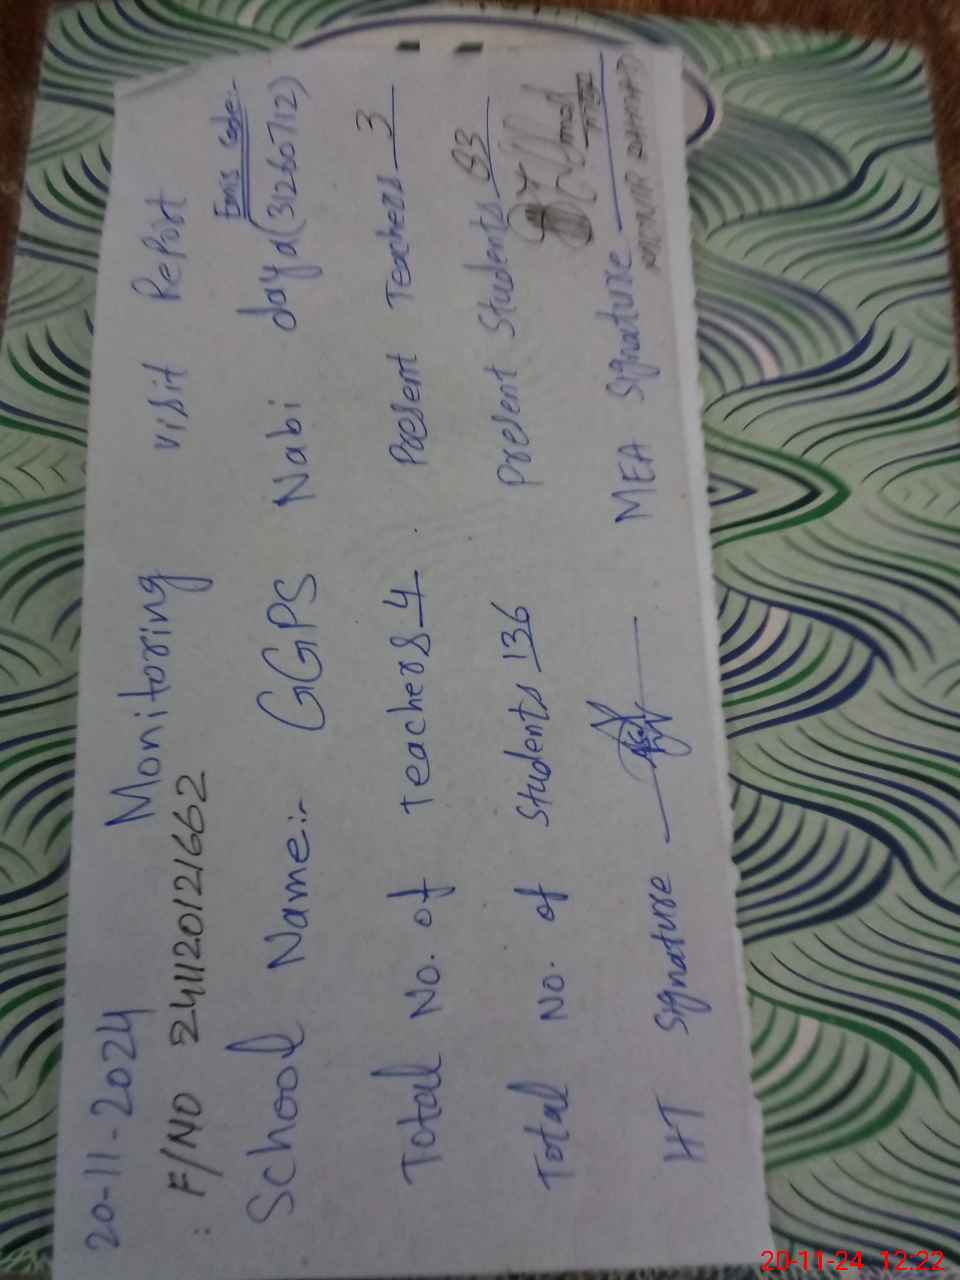 20-11-2024 Monitoring visit Report
: F/NO 241120121662
Emis Code:-
School Name:- GGPS Nabi daya (31260712)
Total No. of Teachers 4 . Present Teachers 3
Total No. of Students 136 Present Students 83
HT Signature MEA Signature
20-11-24 12:22